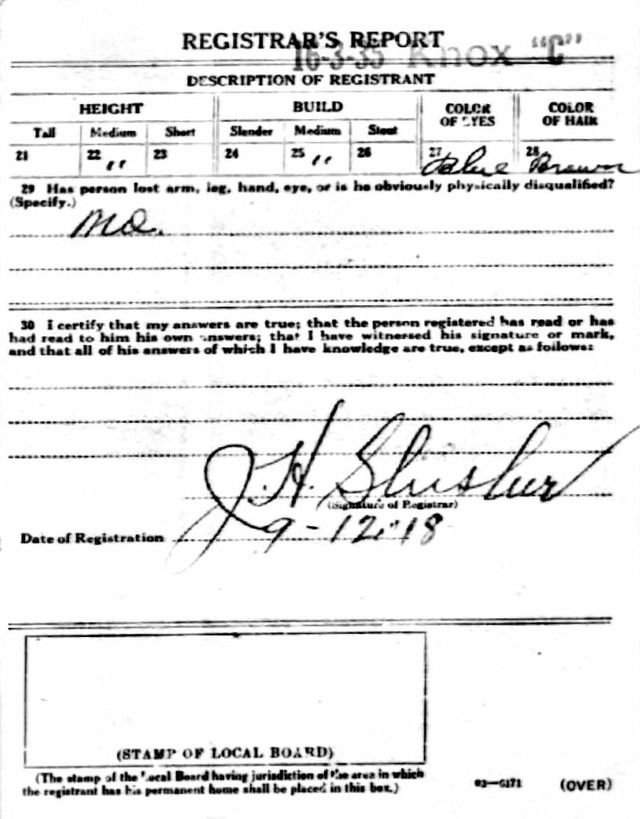 REGISTRAR'S REPORT
16-3-35 Knox "C"
DESCRIPTION OF REGISTRANT
HEIGHT BUILD COLOR OF EYES COLOR OF HAIR
Tall Medium Short Slender Medium Stout
21 22 " 23 24 25 " 26 27 Blue 28 Brown
29 Has person lost arm, leg, hand, eye, or is he obviously physically disqualified?
(Specify.)
No.
30 I certify that my answers are true; that the person registered has read or has
had read to him his own answers; that I have witnessed his signature or mark,
and that all of his answers of which I have knowledge are true, except as follows:
J. H.
(Signature of Registrar)
Date of Registration 9-12-18
(STAMP OF LOCAL BOARD)
(The stamp of the Local Board having jurisdiction of the area in which
the registrant has his permanent home shall be placed in this box.)
03-6171 (OVER)